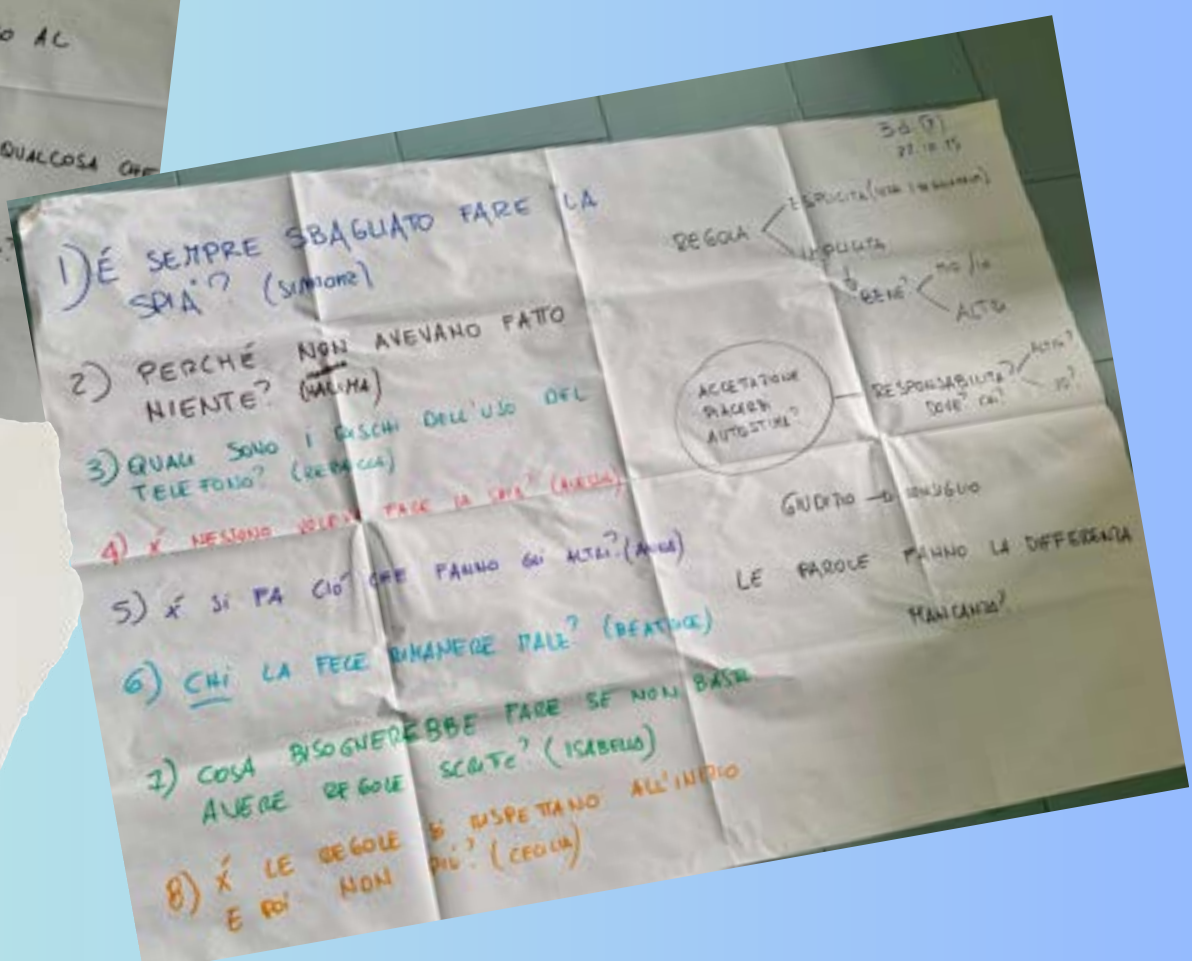 O AL
QUALCOSA CHE
1) É SEMPRE SBAGLIATO FARE LA
SPIA? (SIMONE)
2) PERCHÉ NON AVEVANO FATTO
NIENTE? (HALIMA)
3) QUALI SONO I RISCHI DELL'USO DEL
TELEFONO? (REBECCA)
4) X́ NESSUNO VOLEVA FARE LA SPIA?
5) X́ SI FA CIÓ CHE FANNO GLI ALTRI? (ANNA)
6) CHI LA FECE RIMANERE MALE? (BEATRICE)
7) COSA BISOGNEREBBE FARE SE NON BASTA
AVERE REGOLE SCRITTE? (ISABELLA)
8) X́ LE REGOLE SI RISPETTANO ALL'INIZIO
E POI NON PIÚ? (CECILIA)
REGOLA
ESPLICITA
IMPLICITA
BENE?
MIO/IO
ALTRI
ACCETAZIONE
PIACERE
AUTOSTIMA?
RESPONSABILITÀ?
ALTRI?
IO?
DOVE? CHI?
GIUDIZIO → CONSIGLIO
LE PAROLE FANNO LA DIFFERENZA
MANCANZA?